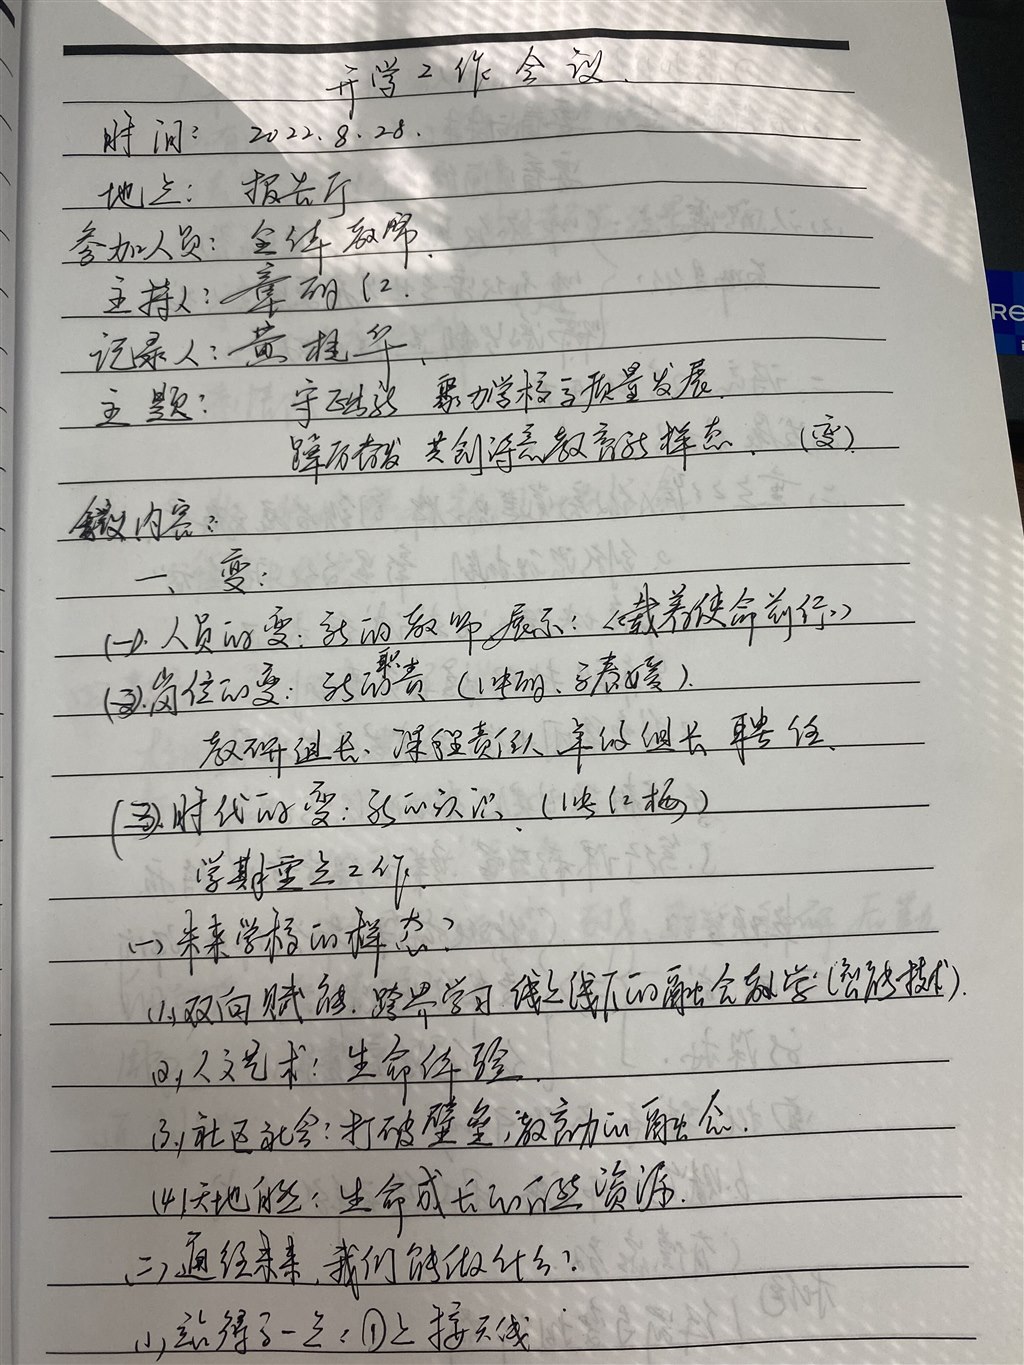 开学工作会议.
时间: 2022.8.28.
地点: 报告厅
参加人员: 全体教师.
主持人: 章明仁.
记录人: 黄桂华.
主题: 守正创新 聚力学校高质量发展.
踔厉奋发 共创 教育新样态. (变)
会议内容:
一、变:
(一).人员的变: 新的教师展示:《载着使命前行》
(二).岗位的变: 新的职责 ( ).
教研组长、课程责任人 年级组长 聘任.
(三).时代的变: 新的认识. ( 红梅)
学期重点工作.
(一)未来学校的样态?
(1)双向赋能. 跨界学习 线上线下的融合教学(智能技术).
(2)人文艺术: 生命体验.
(3)社区社会: 打破壁垒, 的融合.
(4)天地自然: 生命成长的自然资源.
(二)通往未来, 我们能做什么?
(1)站得高一点: ①上接天线
RE